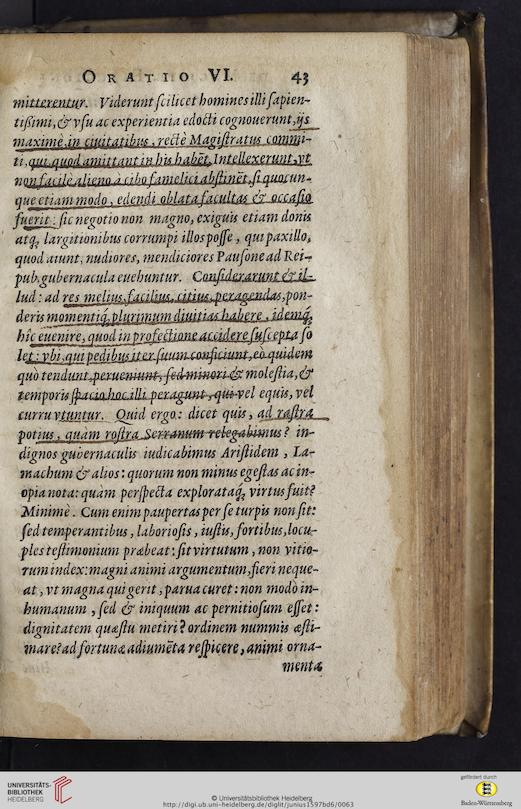 ORATIO VI. 43
mitterentur. Viderunt scilicet homines illi sapien-
tißimi, & vsu ac experientia edocti cognouerunt, ijs
maximè, in ciuitatibus, rectè Magistratus commi-
ti, qui, quod amittant in his habẽt. Intellexerunt, vt
non facilè alieno à cibo famelici abstinẽt, si quocun-
que etiam modo, edendi oblata facultas & occasio
fuerit: sic negotio non magno, exiguis etiam donis
atq, largitionibus corrumpi illos posse, qui paxillo,
quod aiunt, nudiores, mendiciores Pausone ad Rei-
pub. gubernacula euehuntur. Considerarunt & il-
lud: ad res melius, facilius, citius, peragendas, pon-
deris momentiq, plurimum diuitias habere, idemq,
hîc euenire, quod in profectione accidere suscepta so
let: vbi, qui pedibus iter suum conficiunt, eò quidem
quò tendunt, perueniunt, sed minori & molestia, &
temporis spacio hoc illi peragunt, qui vel equis, vel
curru vtuntur. Quid ergo: dicet quis, ad rastra
potius, quàm rostra Serranum relegabimus? in-
dignos gubernaculis iudicabimus Aristidem, La-
machum & alios: quorum non minus egestas ac in-
opia nota: quàm perspecta explorataq, virtus fuit?
Minimè. Cum enim paupertas per se turpis non sit:
sed temperantibus, laboriosis, iustis, fortibus, locu-
ples testimonium præbeat: sit virtutum, non vitio-
rum index: magni animi argumentum, fieri neque-
at, vt magna qui gerit, parua curet: non modò in-
humanum, sed & iniquum ac pernitiosum esset:
dignitatem quæstu metiri? ordinem nummis æsti-
mare? ad fortunæ adiumẽta respicere, animi orna-
menta
UNIVERSITÄTS-
BIBLIOTHEK
HEIDELBERG
© Universitätsbibliothek Heidelberg
http://digi.ub.uni-heidelberg.de/diglit/junius1597bd6/0063
gefördert durch
Baden-Württemberg